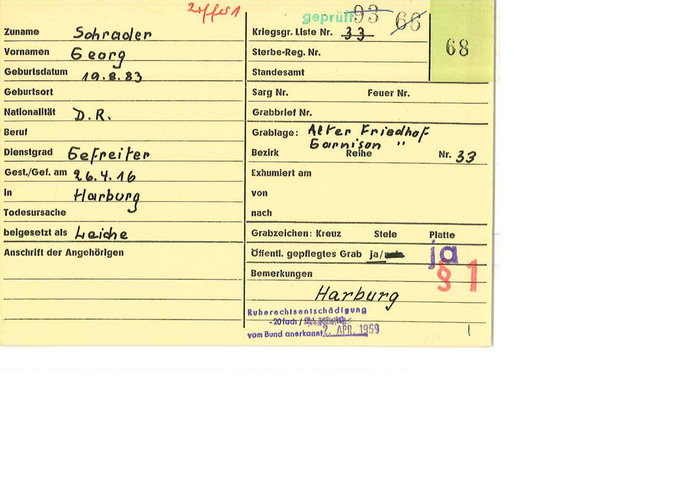 Ziffer 1
Zuname Schrader
Vornamen Georg
Geburtsdatum 19.8.83
Geburtsort
Nationalität D.R.
Beruf
Dienstgrad Gefreiter
Gest./Gef. am 26.4.16
in Harburg
Todesursache
beigesetzt als Leiche
Anschrift der Angehörigen
geprüft 93 68
Kriegsgr. Liste Nr. 33
Sterbe-Reg. Nr.
Standesamt
68
Sarg Nr. Feuer Nr.
Grabbrief Nr.
Grablage: Alter Friedhof
Garnison "
Bezirk Reihe Nr. 33
Exhumiert am
von
nach
Grabzeichen: Kreuz Stele Platte
Öffentl. gepflegtes Grab ja/
ja
§ 1
Bemerkungen
Harburg
Ruherechtsentschädigung
-20fach/
vom Bund anerkannt 2. APR. 1959
1